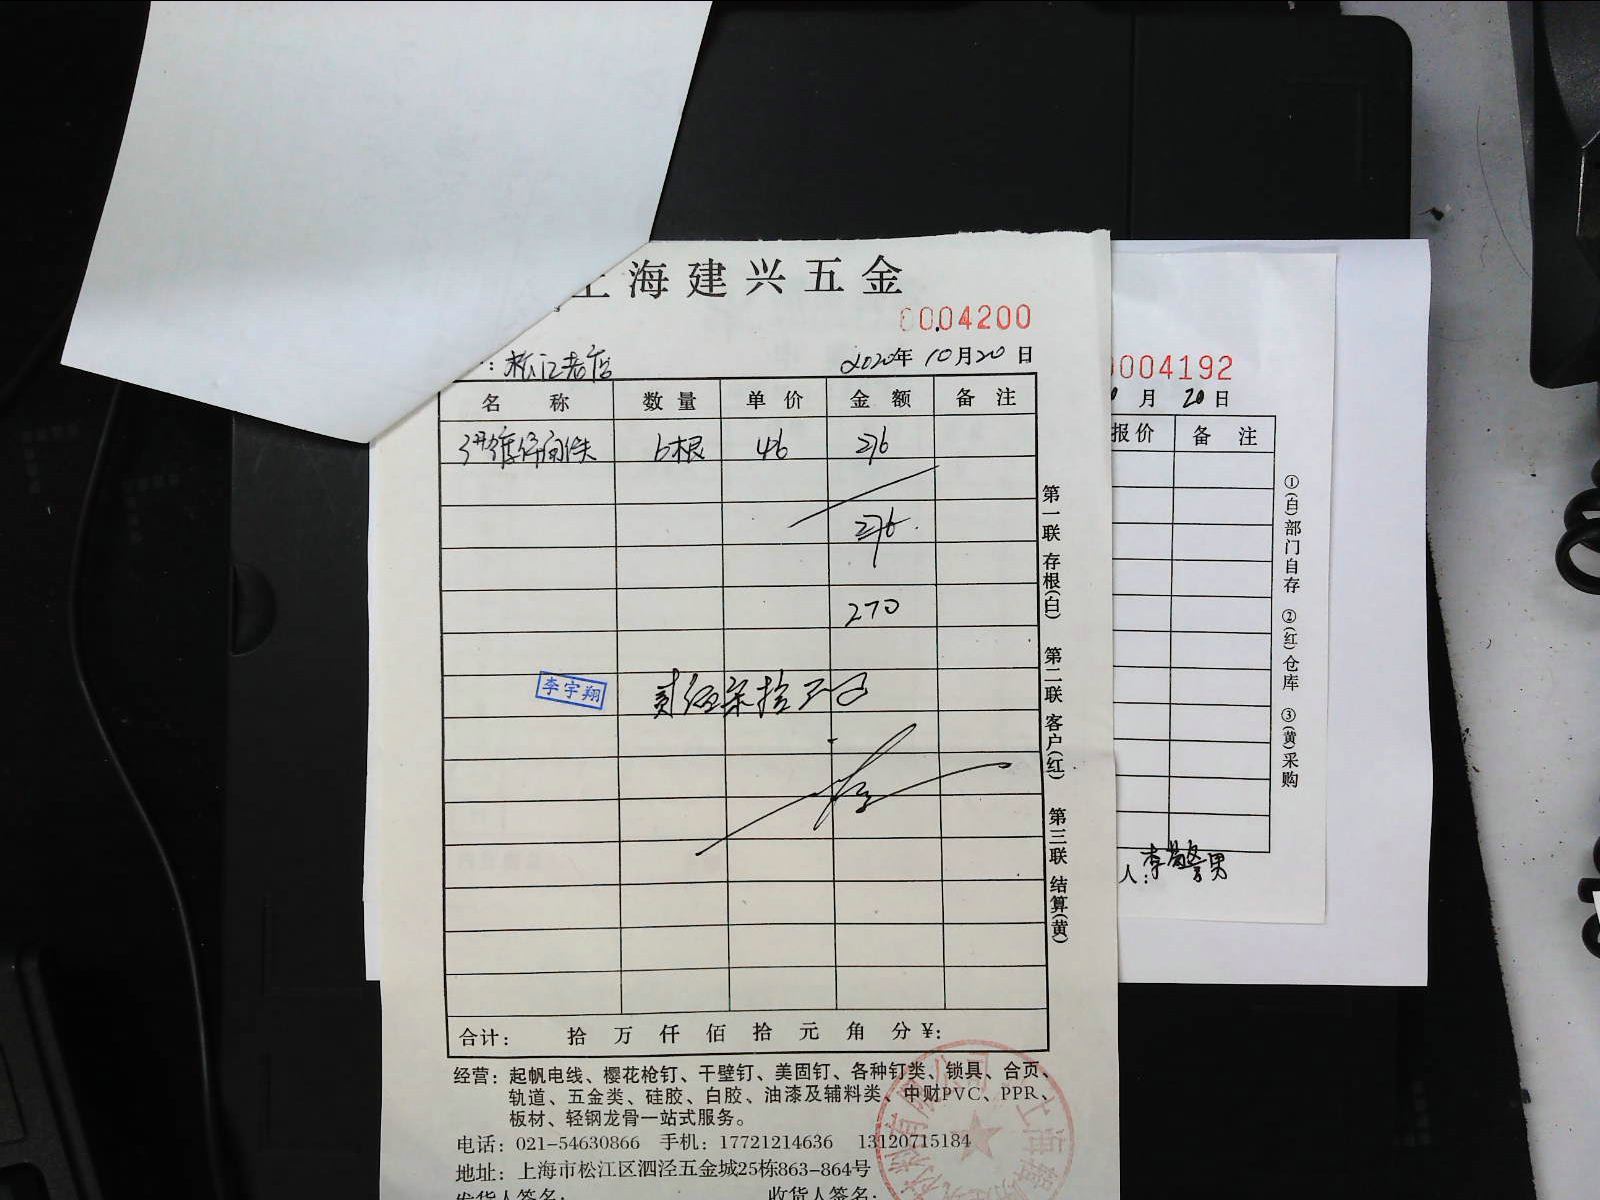 上海建兴五金
0004200
：松江老店
2020年10月20日
名 称 数量 单价 金额 备注
6根 46 276
276
270
李宇翔
贰佰柒拾元正
第一联 存根(白) 第二联 客户(红) 第三联 结算(黄)
合计： 拾 万 仟 佰 拾 元 角 分 ¥：
经营：起帆电线、樱花枪钉、干壁钉、美固钉、各种钉类、锁具、合页、
轨道、五金类、硅胶、白胶、油漆及辅料类、中财PVC、PPR、
板材、轻钢龙骨一站式服务。
电话：021-54630866 手机：17721214636 13120715184
地址：上海市松江区泗泾五金城25栋863-864号
发货人签名： 收货人签名：
0004192
月 20日
报价 备注
①(白)部门自存 ②(红)仓库 ③(黄)采购
人：李警男